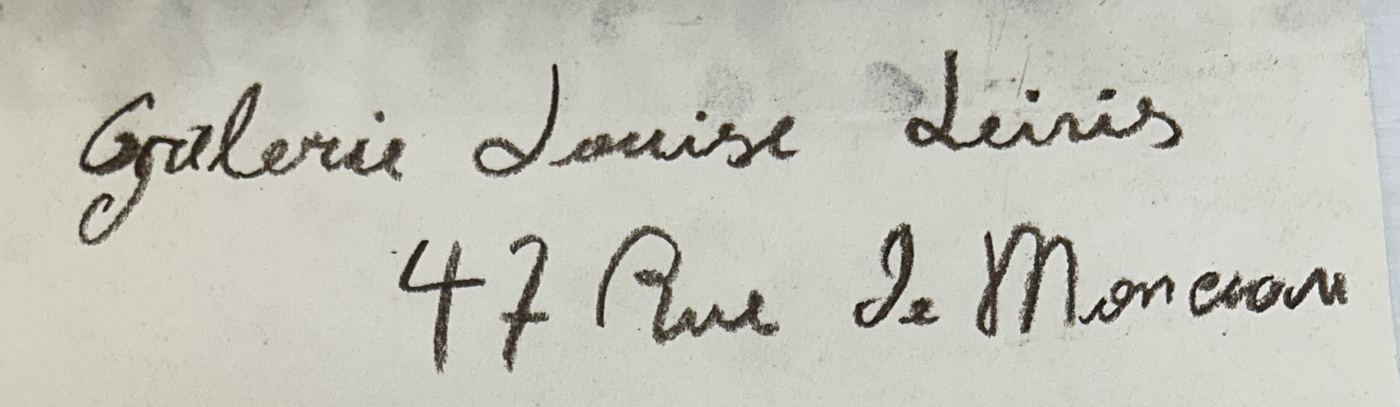 Galerie Louise Leiris
47 Rue de Monceau